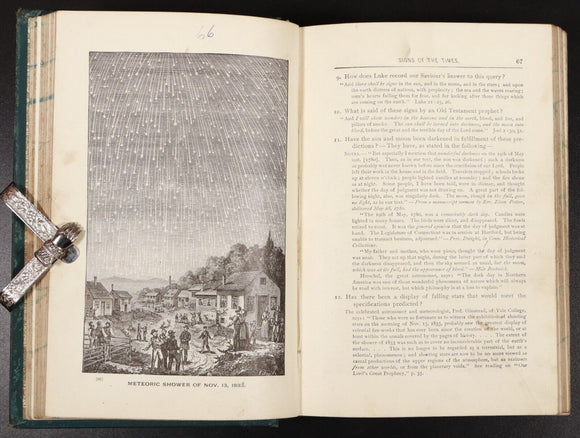 66
(66)
METEORIC SHOWER OF NOV. 13, 1833.
SIGNS OF THE TIMES. 67
9. How does Luke record our Saviour's answer to this query?
"And there shall be signs in the sun, and in the moon, and in the stars; and upon
the earth distress of nations, with perplexity; the sea and the waves roaring;
men's hearts failing them for fear, and for looking after those things which
are coming on the earth." Luke 21:25, 26.
10. What is said of these signs by an Old Testament prophet?
"And I will show wonders in the heavens and in the earth, blood, and fire, and
pillars of smoke. The sun shall be turned into darkness, and the moon into
blood, before the great and the terrible day of the Lord come." Joel 2:30, 31.
11. Have the sun and moon been darkened in fulfillment of these pre-
dictions? — They have, as stated in the following —
NOTES. — "But especially I mention that wonderful darkness on the 19th of May
inst. [1780]. Then, as in our text, the sun was darkened; such a darkness
as probably was never known before since the crucifixion of our Lord. People
left their work in the house and in the field. Travelers stopped; schools broke
up at eleven o'clock; people lighted candles at noonday; and the fire shone
as at night. Some people, I have been told, were in dismay, and thought
whether the day of judgment was not drawing on. A great part of the fol-
lowing night, also, was singularly dark. The moon, though in the full, gave
no light, as in our text." — From a manuscript sermon by Rev. Elam Potter,
delivered May 28, 1780.
"The 19th of May, 1780, was a remarkably dark day. Candles were
lighted in many houses. The birds were silent, and disappeared. The fowls
retired to roost. It was the general opinion that the day of judgment was at
hand. The Legislature of Connecticut was in session at Hartford, but being
unable to transact business, adjourned." — Pres. Dwight, in Conn. Historical
Collections.
"My father and mother, who were pious, thought the day of judgment
was near. They sat up that night, during the latter part of which they said
the darkness disappeared, and then the sky seemed as usual, but the moon,
which was at the full, had the appearance of blood." — Milo Bostwick.
Herschel, the great astronomer, says: "The dark day in Northern
America was one of those wonderful phenomena of nature which will always
be read with interest, but which philosophy is at a loss to explain."
12. Has there been a display of falling stars that would meet the
specifications predicted?
The celebrated astronomer and meteorologist, Prof. Olmstead, of Yale College,
says: "Those who were so fortunate as to witness the exhibition of shooting
stars on the morning of Nov. 13, 1833, probably saw the greatest display of
celestial fireworks that has ever been since the creation of the world, or at
least within the annals covered by the pages of history. . . . The extent of
the shower of 1833 was such as to cover no inconsiderable part of the earth's
surface. . . . This is no longer to be regarded as a terrestrial, but as a
celestial, phenomenon; and shooting stars are now to be no more viewed as
casual productions of the upper regions of the atmosphere, but as visitants
from other worlds, or from the planetary voids." See reading on "Our
Lord's Great Prophecy," p. 35.